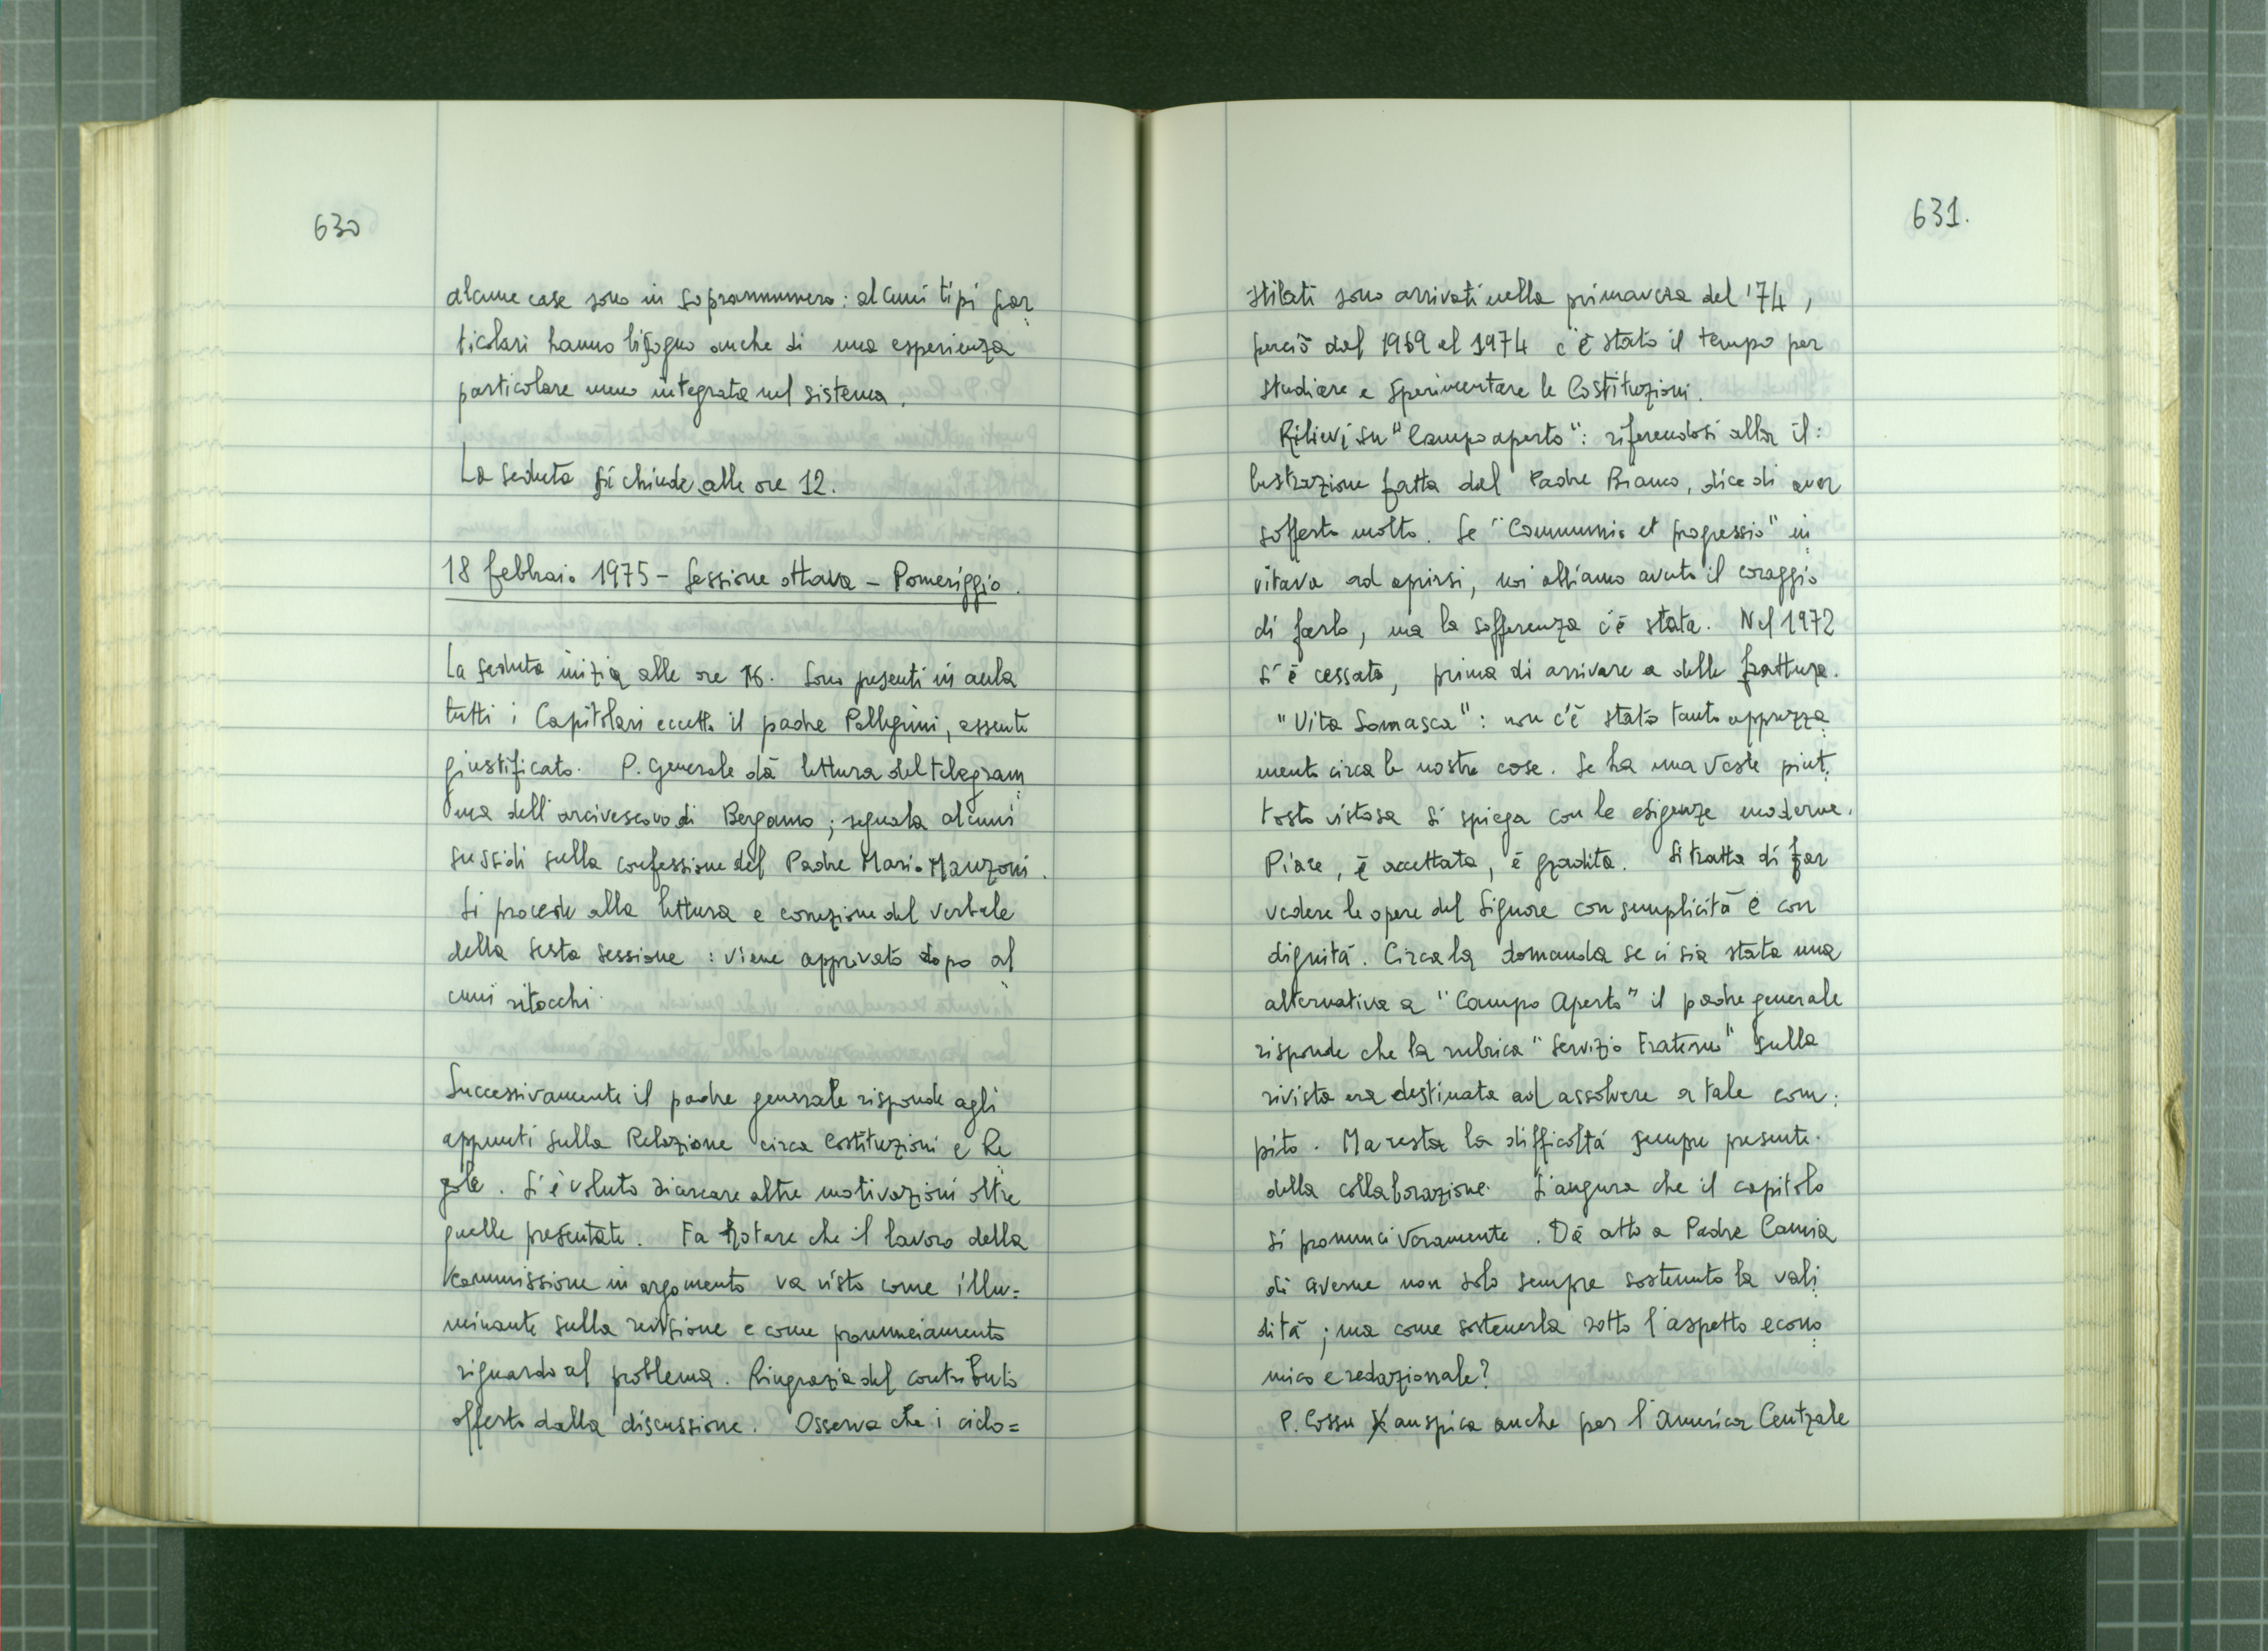 630
alcune case sono in soprannumero: alcuni tipi par
ticolari hanno bisogno anche di una esperienza
particolare meno integrata nel sistema.
La seduta si chiude alle ore 12.
18 febbraio 1975 - Sessione ottava - Pomeriggio.
La seduta inizia alle ore 16. Sono presenti in aula
tutti i Capitolari eccetto il padre Pellegrini, assente
giustificato. P. Generale dà lettura del telegram
ma dell'arcivescovo di Bergamo; segnala alcuni
sussidi sulla confessione del Padre Mario Manzoni.
Si procede alla lettura e correzione del verbale
della sesta sessione: viene apprivato dopo al
cuni ritocchi.
Successivamente il padre generale risponde agli
appunti sulla Relazione circa Costituzioni e Re
gole. Si è voluto ricercare altre motivazioni oltre
quelle presentate. Fa notare che il lavoro della
commissione in argomento va visto come illu=
minante sulla revisione e come pronunciamento
riguardo al problema. Ringrazia del contributo
offerto dalla discussione. Osserva che i ciclo=
631.
stilati sono arrivati nella primavera del '74,
perciò dal 1969 al 1974 c'è stato il tempo per
studiare e sperimentare le Costituzioni.
Rilievi su "Campo aperto": riferendosi alla il:
lustrazione fatta dal Padre Bianco, dice di aver
sofferto molto. Se "Communio et progressio" in
vitava ad aprirsi, noi abbiamo avuto il coraggio
di farlo, ma la sofferenza c'è stata. Nel 1972
si è cessato, prima di arrivare a delle fratture.
"Vita Somasca": non c'è stato tanto apprezza
mento circa le nostre cose. Se ha una veste piut:
tosto vistosa si spiega con le esigenze moderne.
Piace, è accettata, è gradita. Si tratta di far
vedere le opere del Signore con semplicità e con
dignità. Circa la domanda se ci sia stata una
alternativa a "Campo Aperto" il padre generale
risponde che la rubrica "Servizio Fraterno" sulla
rivista era destinata ad assolvere a tale com:
pito. Ma resta la difficoltà sempre presente
della collaborazione. Si augura che il capitolo
si pronunci veramente. Dà atto a Padre Camia
di averne non solo sempre sostenuto la vali
dità; ma come sostenerla sotto l'aspetto econo
mico e redazionale?
P. Cossu auspica anche per l'America Centrale